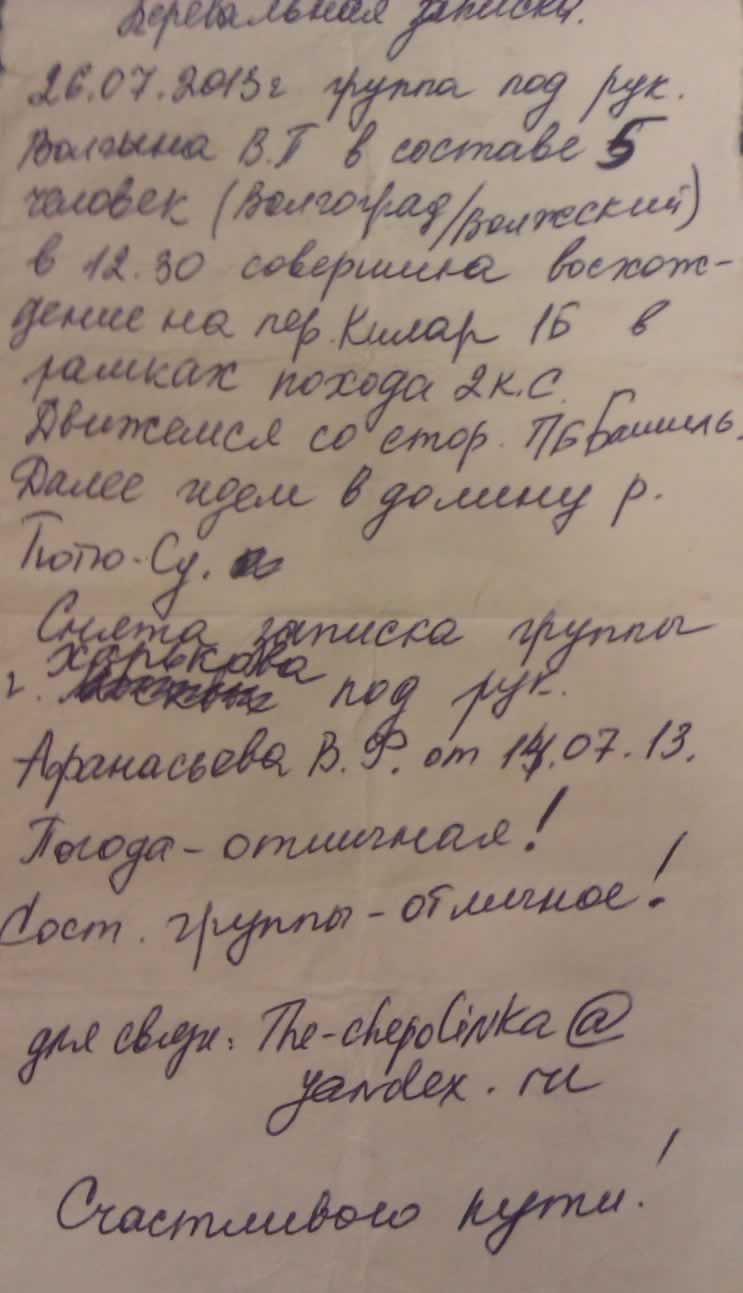 Перевальная записка.
26.07.2013г группа под рук.
Волгына В.П в составе 5
человек (Волгоград/Волжский)
в 12.30 совершила восхож-
дение на пер. Килар 1Б в
рамках похода 2к.с.
Движемся со стор. ПББашиль.
Далее идем в долину р.
Тютю-Су.
Снята записка группы
г. Харькова под рук.
Афанасьева В.Ф. от 14.07.13.
Погода - отличная!
Сост. группы - отличное!
для связи: The-chepolinka@
yandex.ru
Счастливого пути!